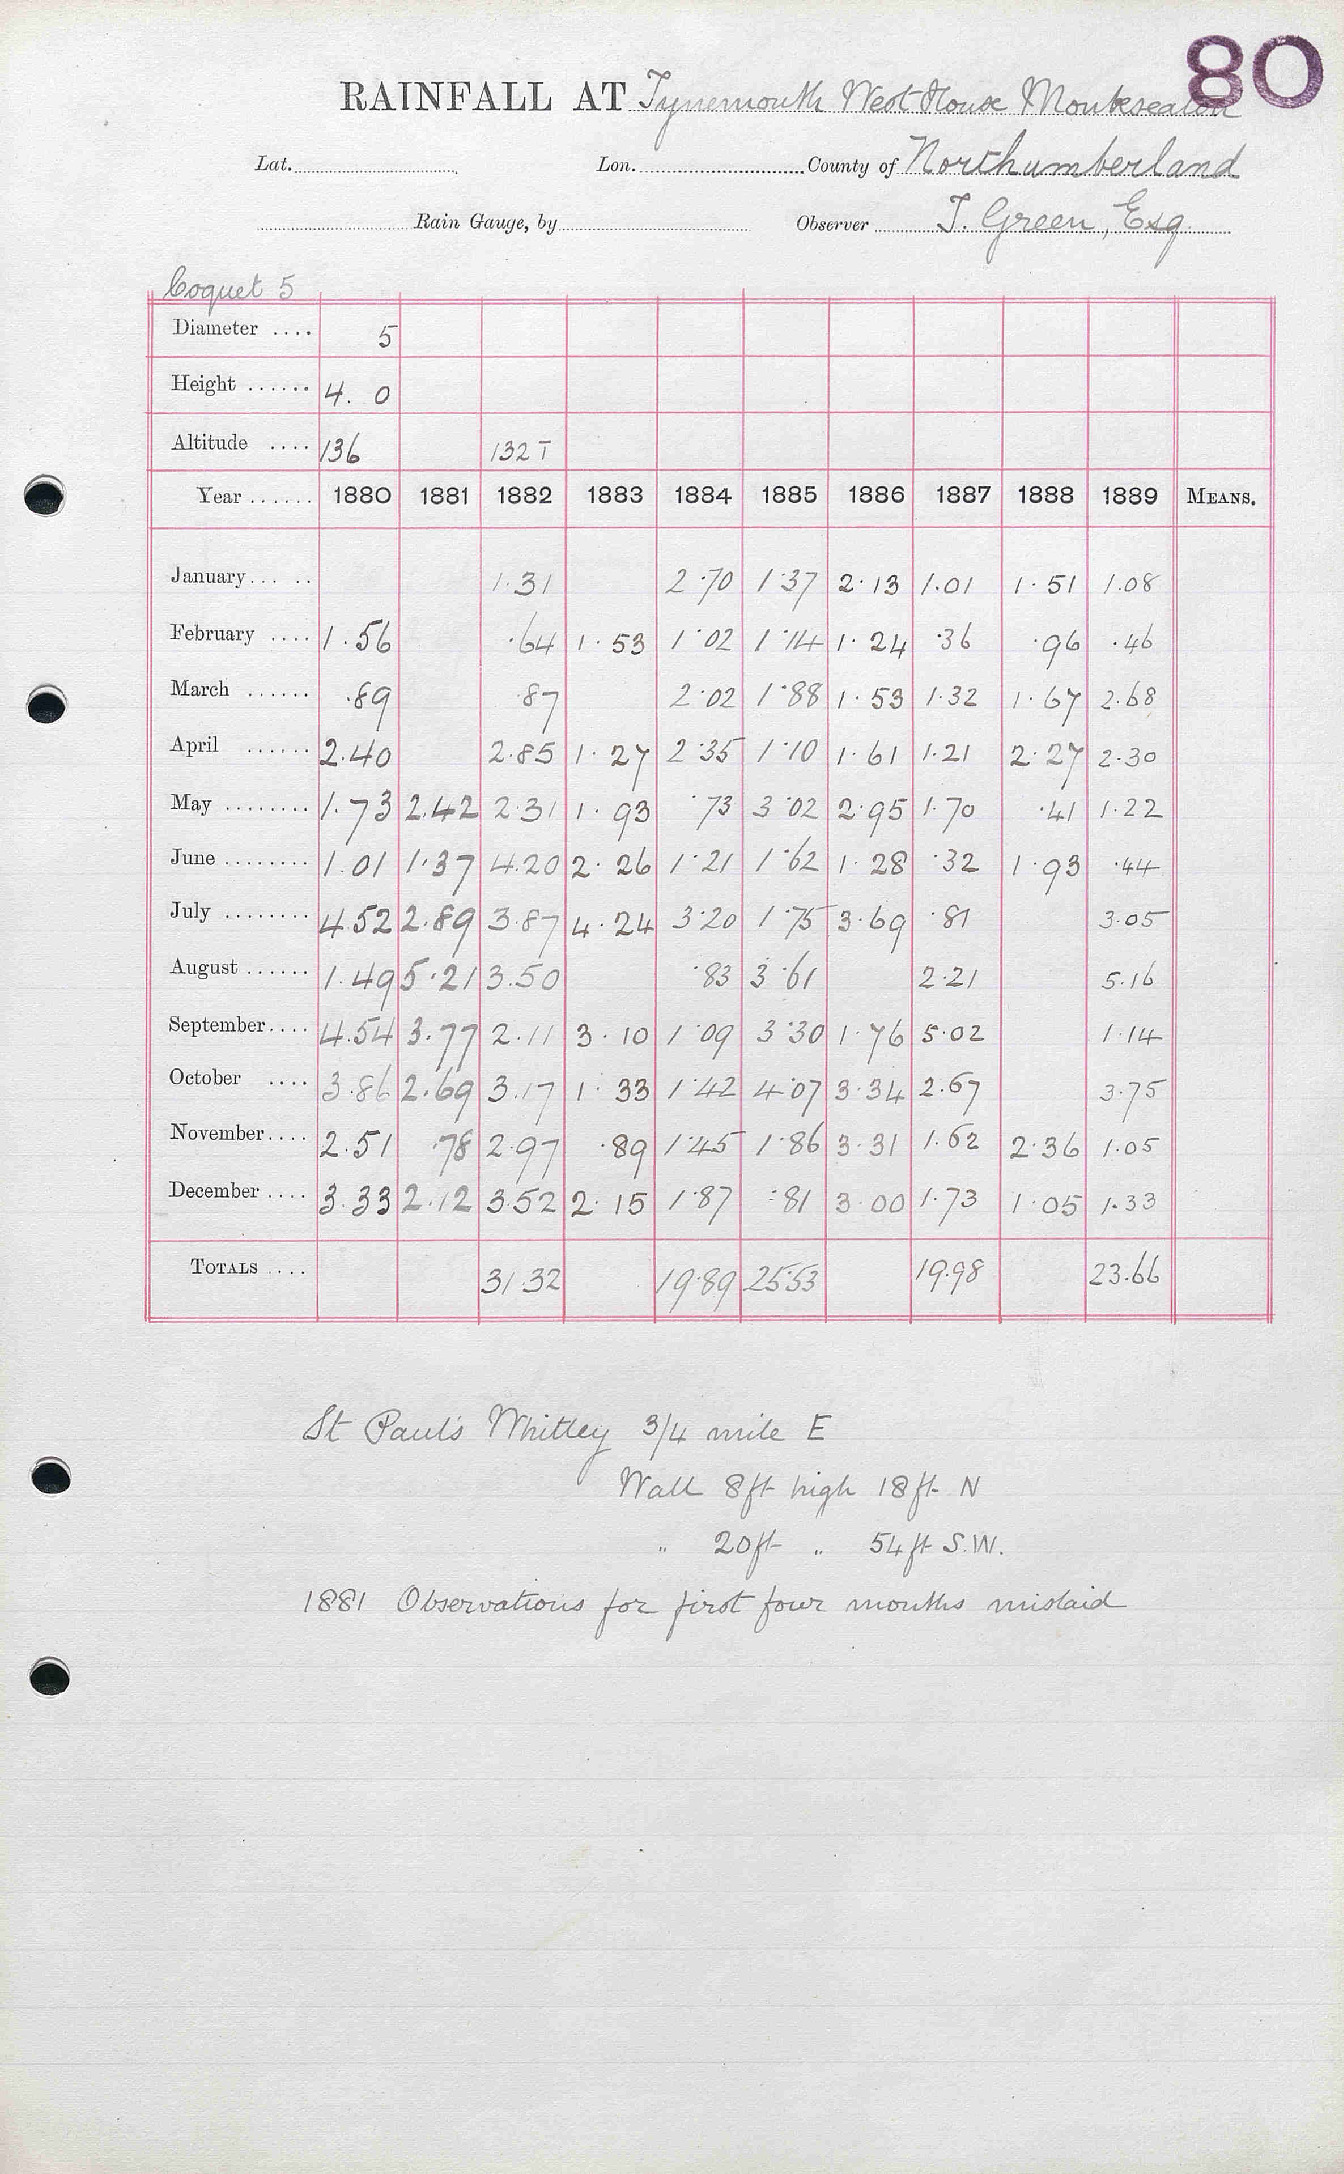 80
RAINFALL AT Tynemouth West House Monkseaton
Lat. Lon. County of Northumberland
Rain Gauge, by Observer T. Green, Esq
Coquet 5
Diameter .... 5
Height ...... 4. 0
Altitude .... 136 132 T
Year ...... 1880 1881 1882 1883 1884 1885 1886 1887 1888 1889 MEANS.
January... .. 1.31 2.70 1.37 2.13 1.01 1.51 1.08
February .... 1.56 .64 1.53 1.02 1.14 1.24 .36 .96 .46
March ...... .89 .87 2.02 1.88 1.53 1.32 1.67 2.68
April ...... 2.40 2.85 1.27 2.35 1.10 1.61 1.21 2.27 2.30
May ........ 1.73 2.42 2.31 1.93 .73 3.02 2.95 1.70 .41 1.22
June ........ 1.01 1.37 4.20 2.26 1.21 1.62 1.28 .32 1.93 .44
July ........ 4.52 2.89 3.87 4.24 3.20 1.75 3.69 .81 3.05
August ...... 1.49 5.21 3.50 .83 3.61 2.21 5.16
September.... 4.54 3.77 2.11 3.10 1.09 3.30 1.76 5.02 1.14
October .... 3.86 2.69 3.17 1.33 1.42 4.07 3.34 2.67 3.75
November.... 2.51 .78 2.97 .89 1.45 1.86 3.31 1.62 2.36 1.05
December .... 3.33 2.12 3.52 2.15 1.87 .81 3.00 1.73 1.05 1.33
TOTALS .... 31.32 19.89 25.53 19.98 23.66
St Paul's Whitley 3/4 mile E
Wall 8ft high 18ft N
" 20ft " 54ft S.W.
1881 Observations for first four months mislaid